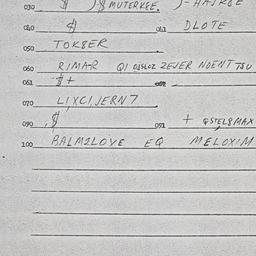 030 $ )-$ MUTERKEE. )-HAJRGE
040 $ 041 DLOTE
050 TOKSER
060 RIMAR QI ZEJER NOENT TSU
061 $+
070 LIXCIJERN7
090 $ 091 + QSTEL8MAX
100 BALM2LOVE EQ MELOXIM